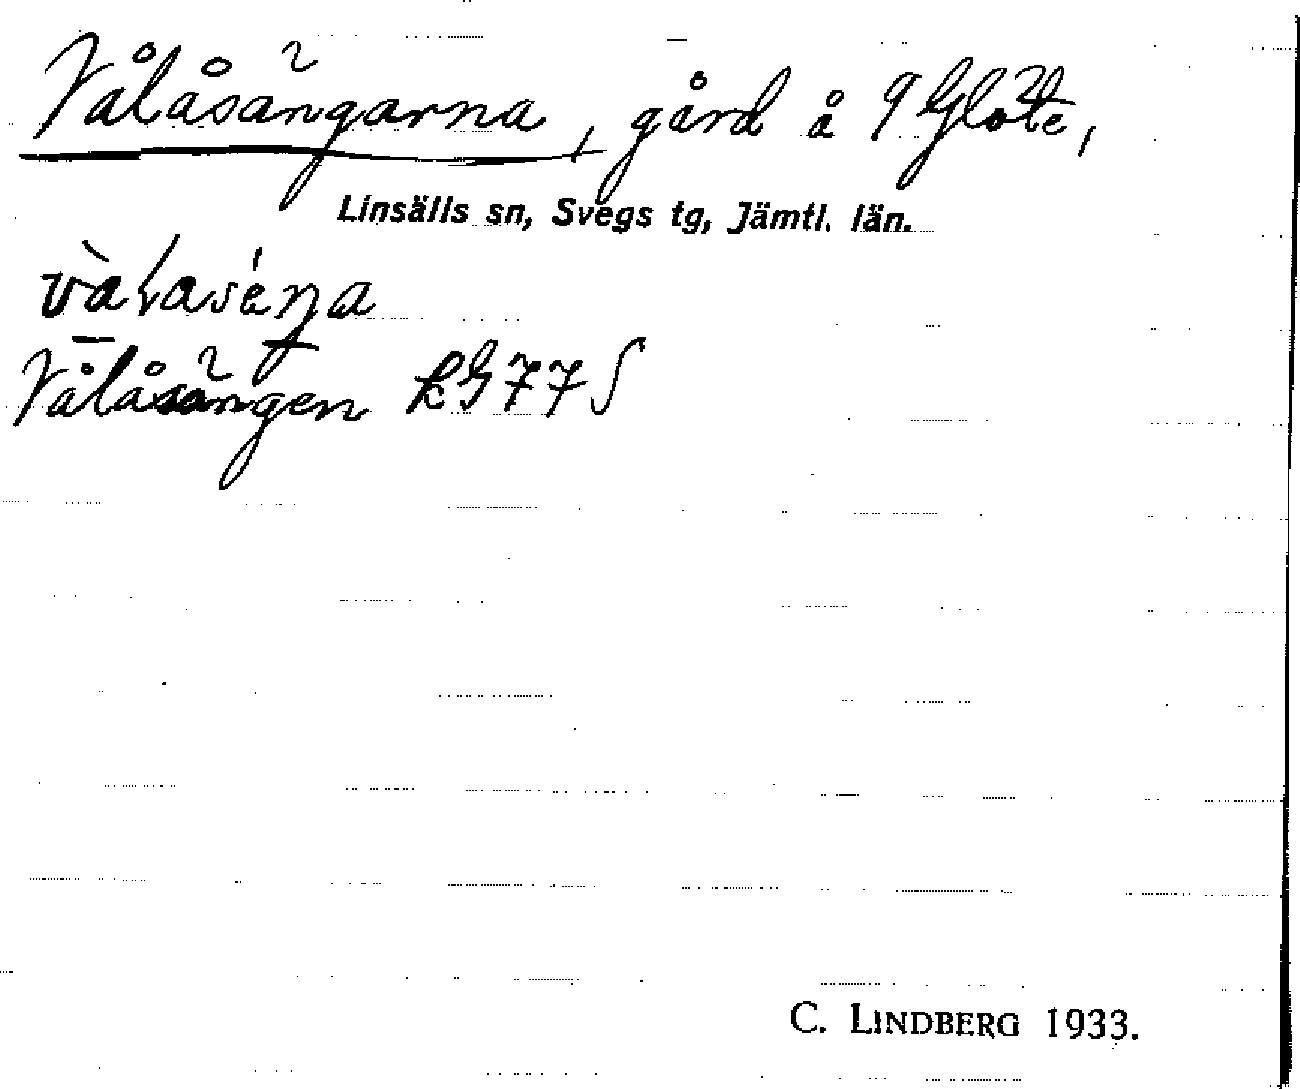 Vålåsängarna, gård å 9 Glöte,
Linsälls sn, Svegs tg, Jämtl. län.
Vålåsängen kG 77 S
C. LINDBERG 1933.